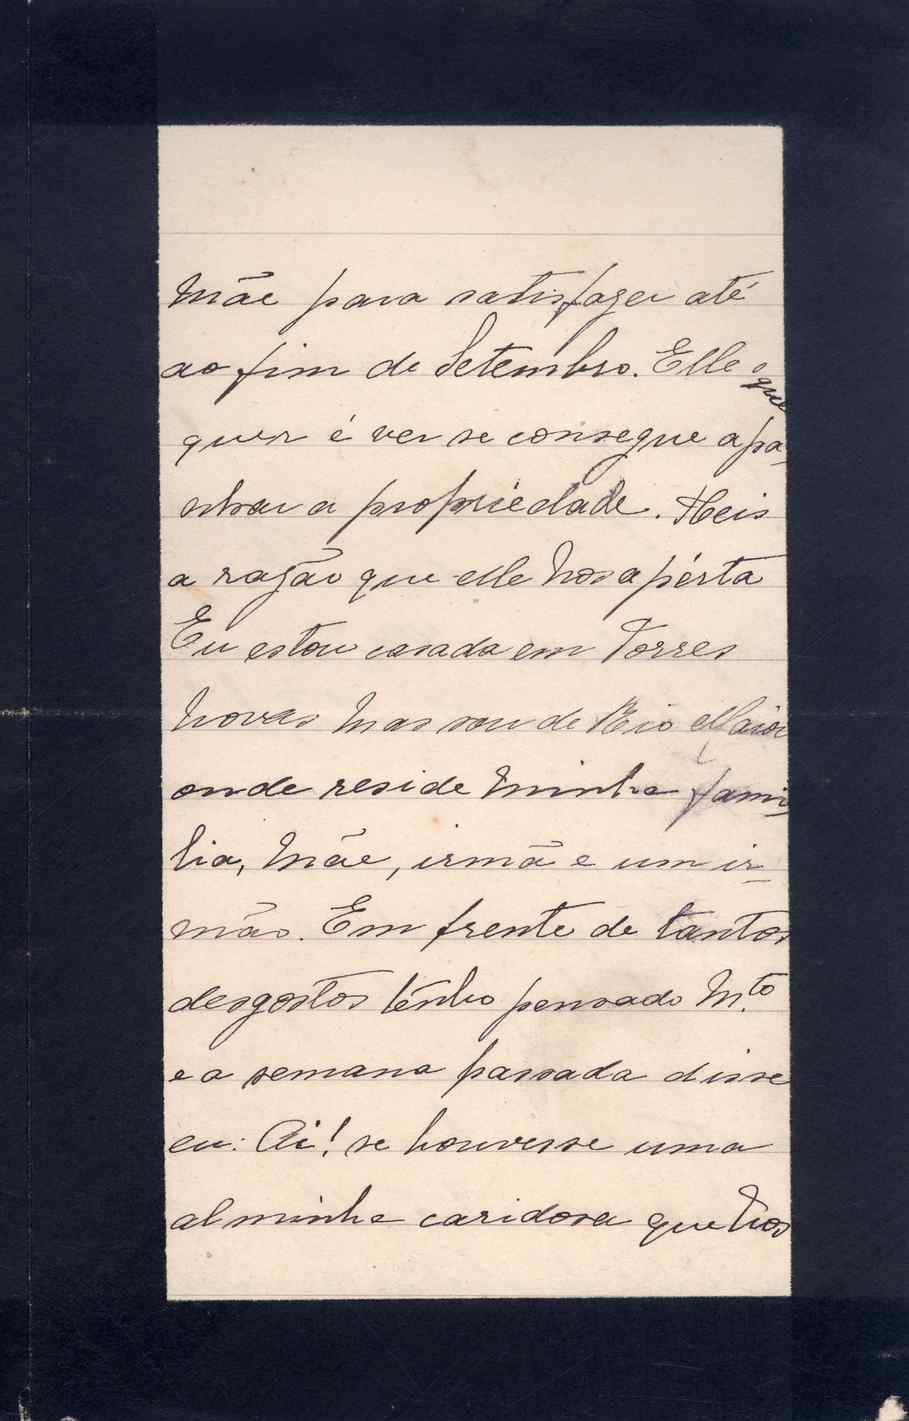 Mãe para satisfazer até
ao fim de Setembro. Elle o que
quer é ver se consegue apa-
nhar a propriedade. Heis
a razão que elle nos apérta
Eu estou casada em Torres
Novas mas sou de Rio Maior
onde reside minha fami-
lia, Mãe, irmã e um ir-
mão. Em frente de tantos
desgostos tênho pensado M.to
e a semana passada disse
eu: Ai! se houvesse uma
alminha caridosa que nos